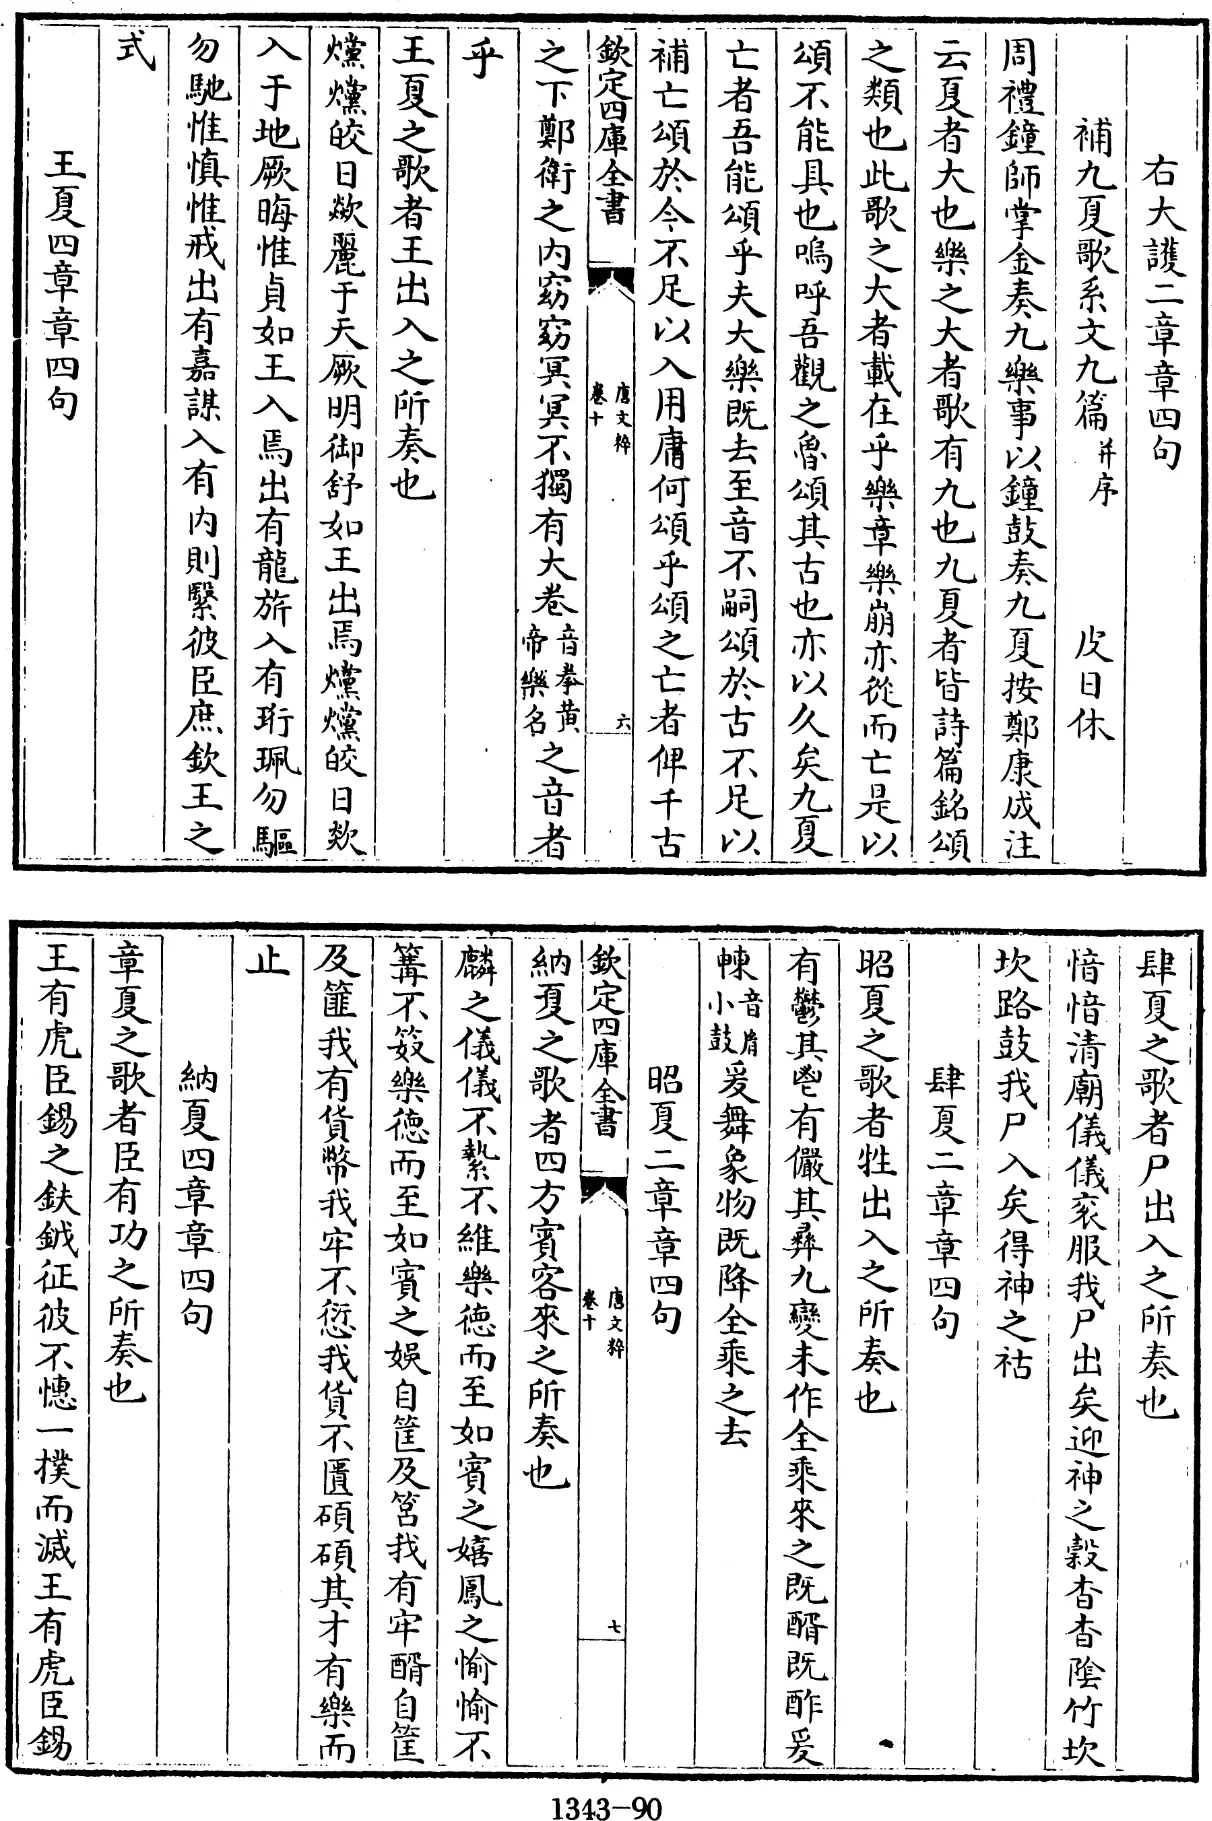 右大頀二章章四句
補九夏歌系文九篇并序 皮日休
周禮鐘師掌金奏九樂事以鐘鼓奏九夏按鄭康成注
云夏者大也樂之大者歌有九也九夏者皆詩篇銘頌
之類也此歌之大者載在乎樂章樂崩亦從而亡是以
頌不能具也嗚呼吾觀之魯頌其古也亦以久矣九夏
亡者吾能頌乎夫大樂既去至音不嗣頌於古不足以
補亡頌於今不足以入用庸何頌乎頌之亡者俾千古
欽定四庫全書 唐文粹 卷十 六
之下鄭衛之内窈窈冥冥不獨有大卷音拳黄帝樂名之音者
乎
王夏之歌者王出入之所奏也
爣爣皎日欻麗于天厥明御舒如王出焉爣爣皎日欻
入于地厥晦惟貞如王入焉出有龍旂入有珩珮勿驅
勿馳惟慎惟戒出有嘉謀入有内則繄彼臣庶欽王之
式
王夏四章章四句
肆夏之歌者尸出入之所奏也
愔愔清廟儀儀衮服我尸出矣迎神之穀杳杳陰竹坎
坎路鼓我尸入矣得神之祜
肆夏二章章四句
昭夏之歌者牲出入之所奏也
有鬱其鬯有儼其彞九變未作全乘來之既醑既酢爰
㪇音胤小鼓爰舞象物既降全乘之去
昭夏二章章四句
欽定四庫全書 唐文粹 卷十 七
納夏之歌者四方賓客來之所奏也
麟之儀儀不縶不維樂德而至如賓之嬉鳳之愉愉不
篝不笯樂德而至如賓之娛自筐及筥我有牢醑自筐
及篚我有貨幣我牢不愆我貨不匱碩碩其才有樂而
止
納夏四章章四句
章夏之歌者臣有功之所奏也
王有虎臣錫之鈇鉞征彼不憓一撲而滅王有虎臣錫
1343-90